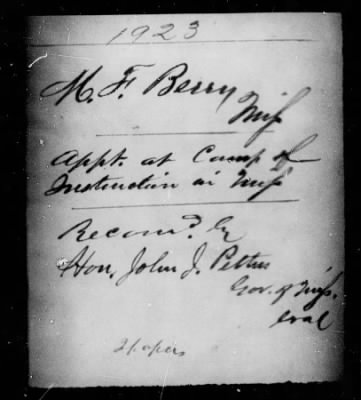 1923
M. F. Berry
Miss
Appt. at Camp of
Instruction in Miss
Recomd. by
Hon. John J. Pettus
Gov. of Miss.
2 papers